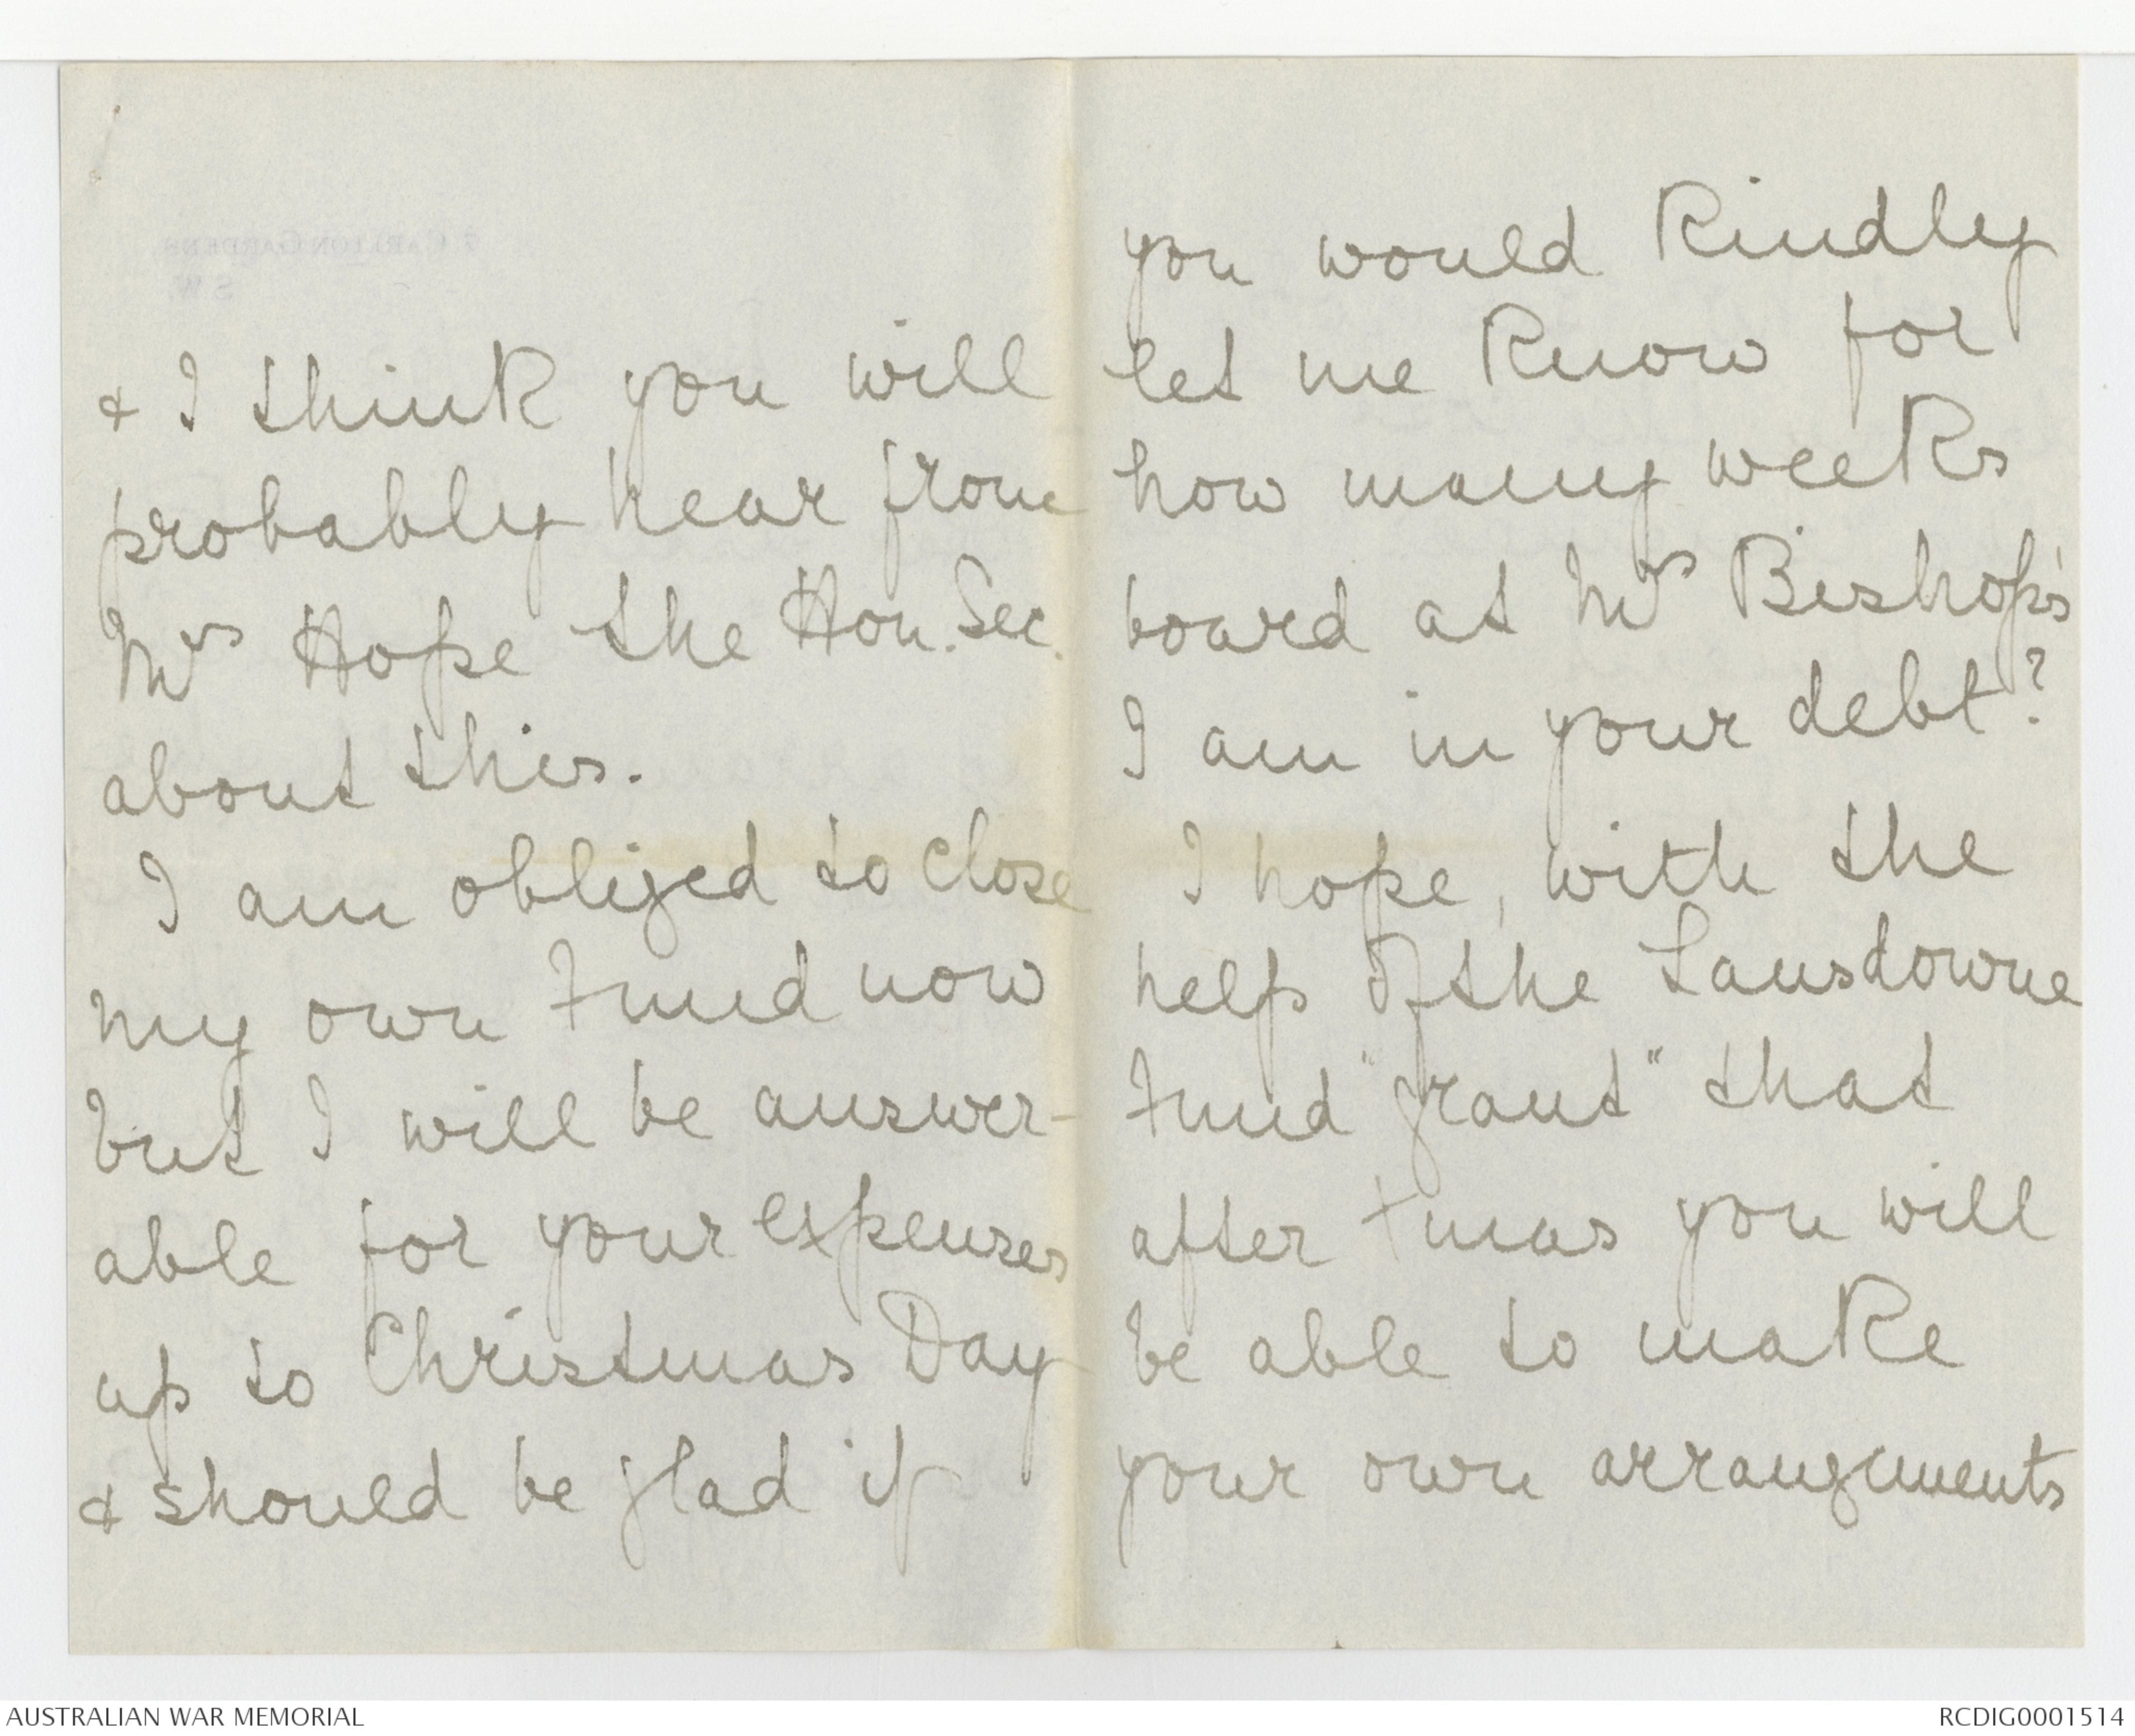 & I think you will
probably hear from
Mrs Hope the Hon. Sec.
about this.
I am obliged to close
my own Fund now
but I will be answer-
able for your expenses
up to Christmas Day
& should be glad if
you would Kindly
let me Know for
how many weeks
board at Mrs Bishop's
I am in your debt?
I hope, with the
help of the Lansdowne
Fund "grant" that
after Xmas you will
be able to make
your own arrangements
7. CARLTON GARDENS.
S.W.
AUSTRALIAN WAR MEMORIAL
RCDIG0001514